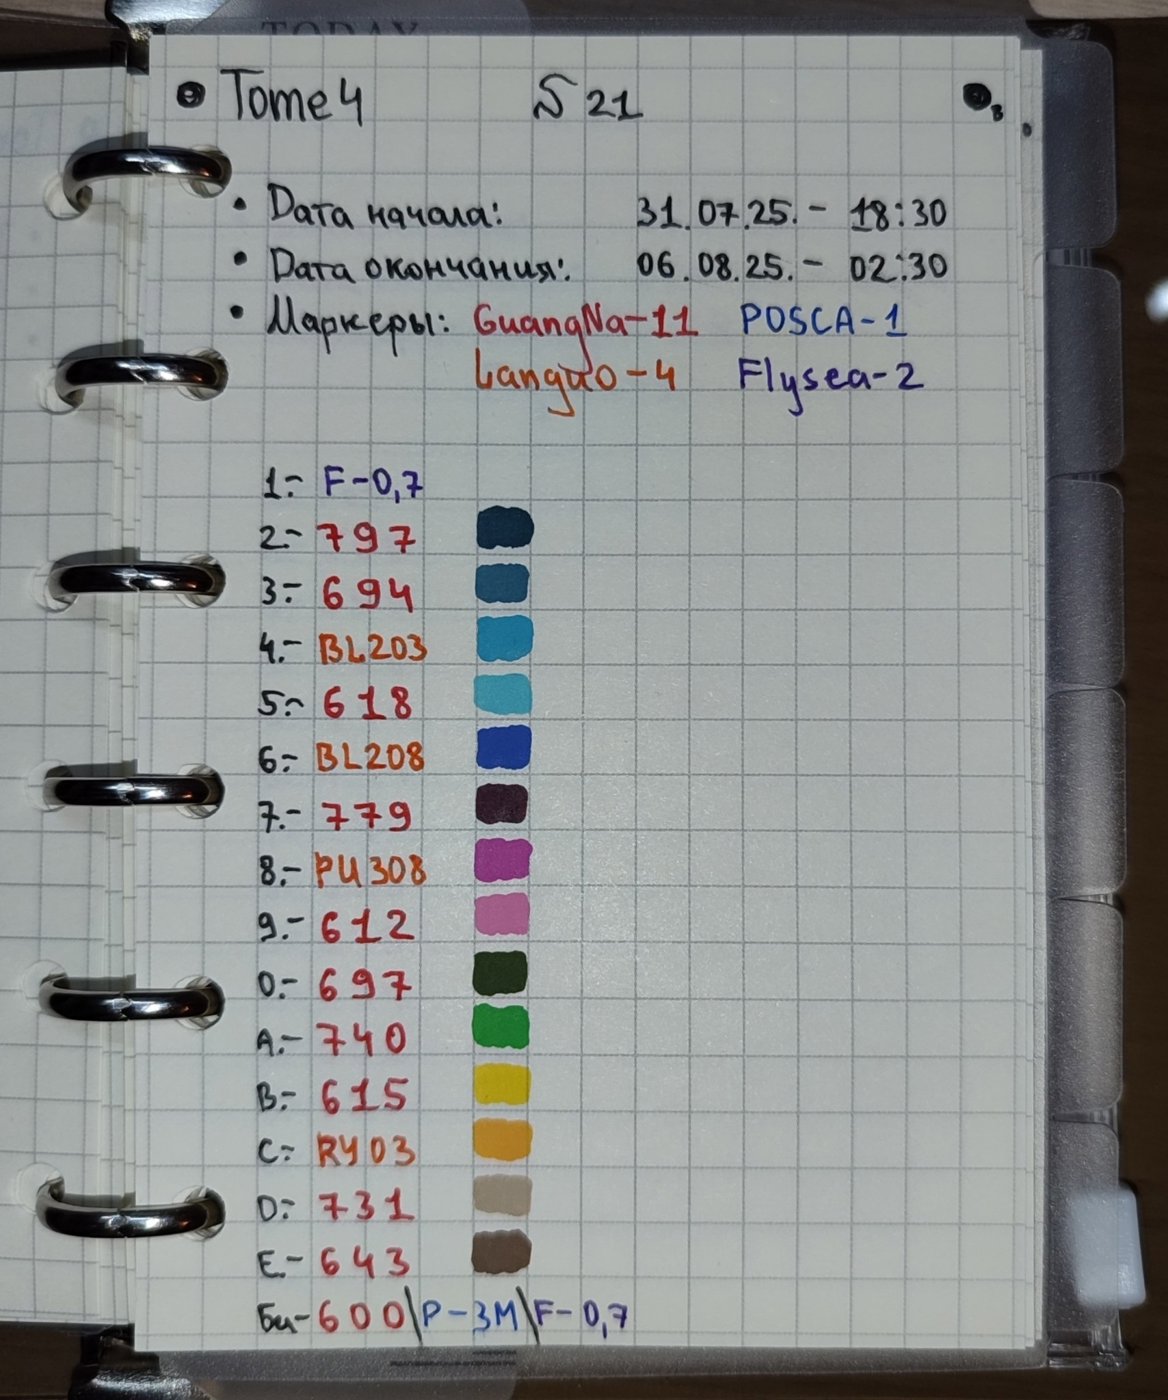 TODAY
Tome 4 S 21
• Дата начала: 31.07.25.- 18:30
• Дата окончания: 06.08.25.- 02:30
• Маркеры: GuangNa-11 POSCA-1
Languo-4 Flysea-2
1.- F-0,7
2.- 797
3.- 694
4.- BL203
5.- 618
6.- BL208
7.- 779
8.- PU308
9.- 612
0.- 697
A.- 740
B.- 615
C.- RY03
D.- 731
E.- 643
Би-600\P-3M\F-0,7